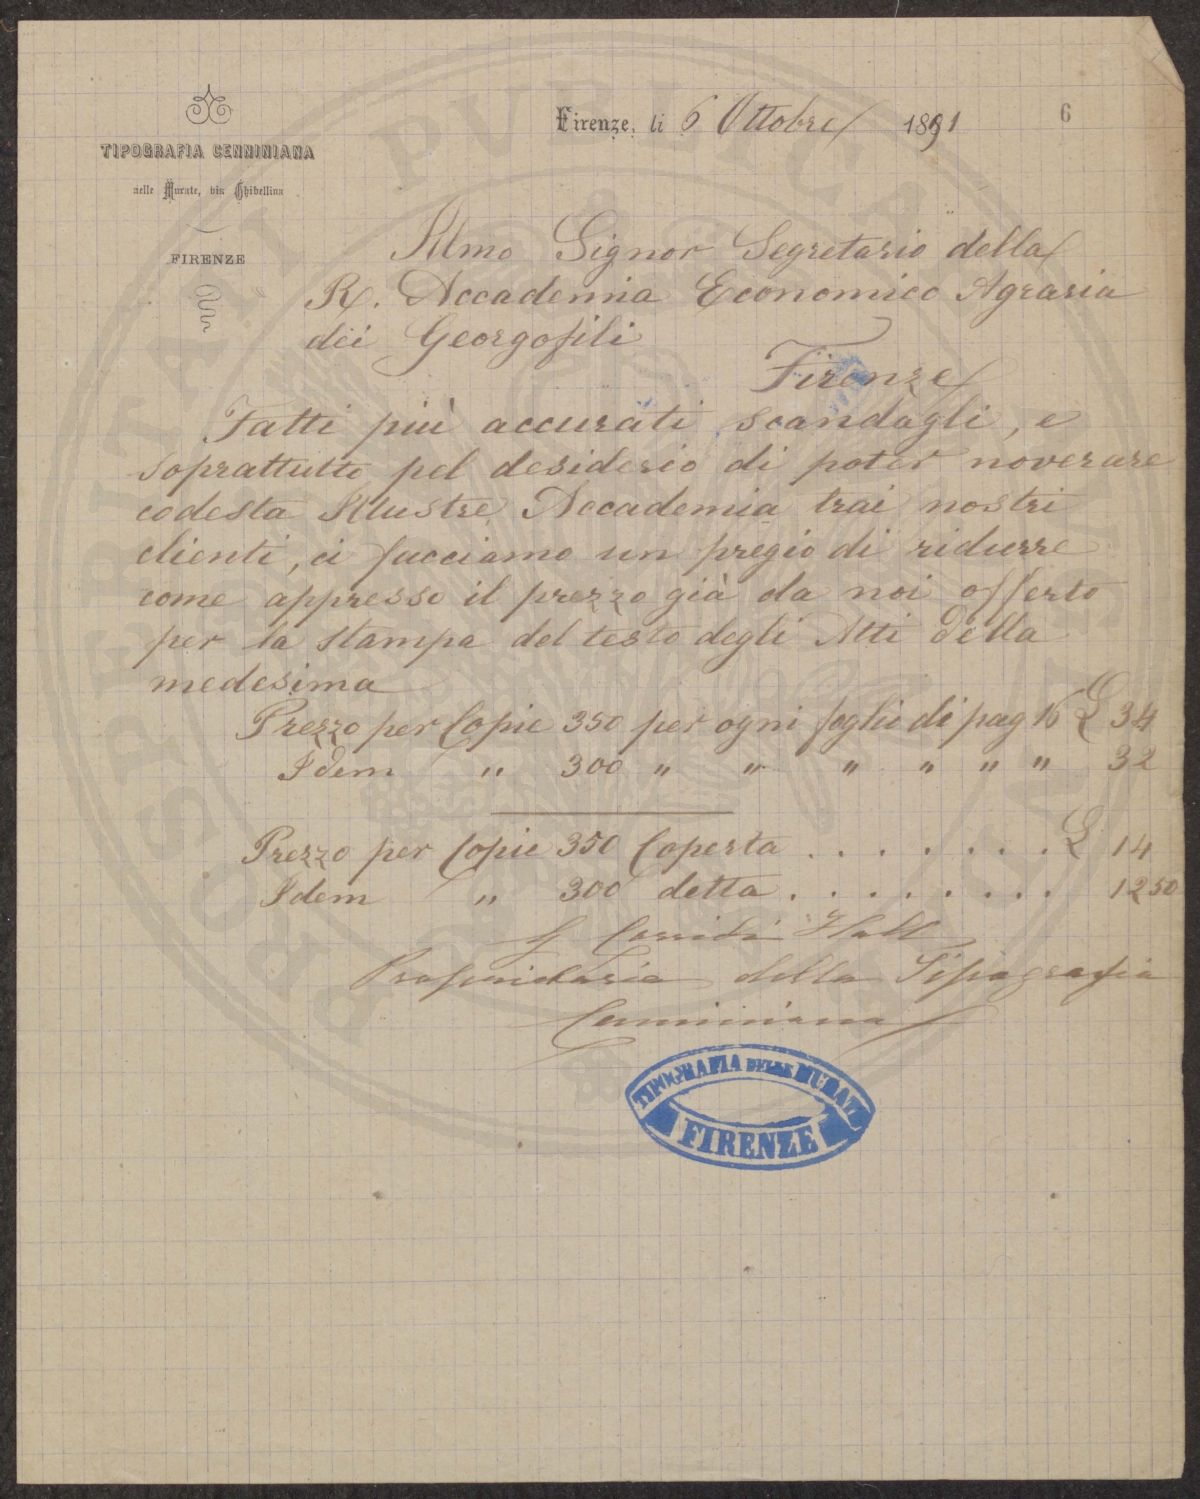 TIPOGRAFIA CENNINIANA
nelle Murate, via Ghibellina
FIRENZE
Firenze, li 6 Ottobre 1891
6
Illmo Signor Segretario della
R. Accademia Economico Agraria
dei Georgofili
Firenze
Fatti più accurati scandagli, e
soprattutto pel desiderio di poter noverare
codesta Illustre Accademia trai nostri
clienti, ci facciamo un pregio di ridurre
come appresso il prezzo già da noi offerto
per la stampa del testo degli Atti della
medesima
Prezzo per Copie 350 per ogni foglio di pag 16 £ 34
Idem " 300 " " " " " " 32
Prezzo per Copie 350 Coperta . . . . . . . £ 14
Idem " 300 detta . . . . . . . . 12 50
Hall
Proprietaria della Tipografia
Cenniniana
TIPOGRAFIA DELLE MURATE
FIRENZE
PROSPERITATI PVBLICAE